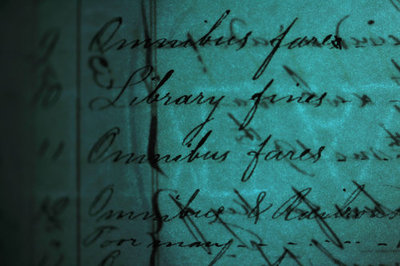 9 Omnibus fares
10 Library fines
11 Omnibus fares
12 Omnibus & Railway